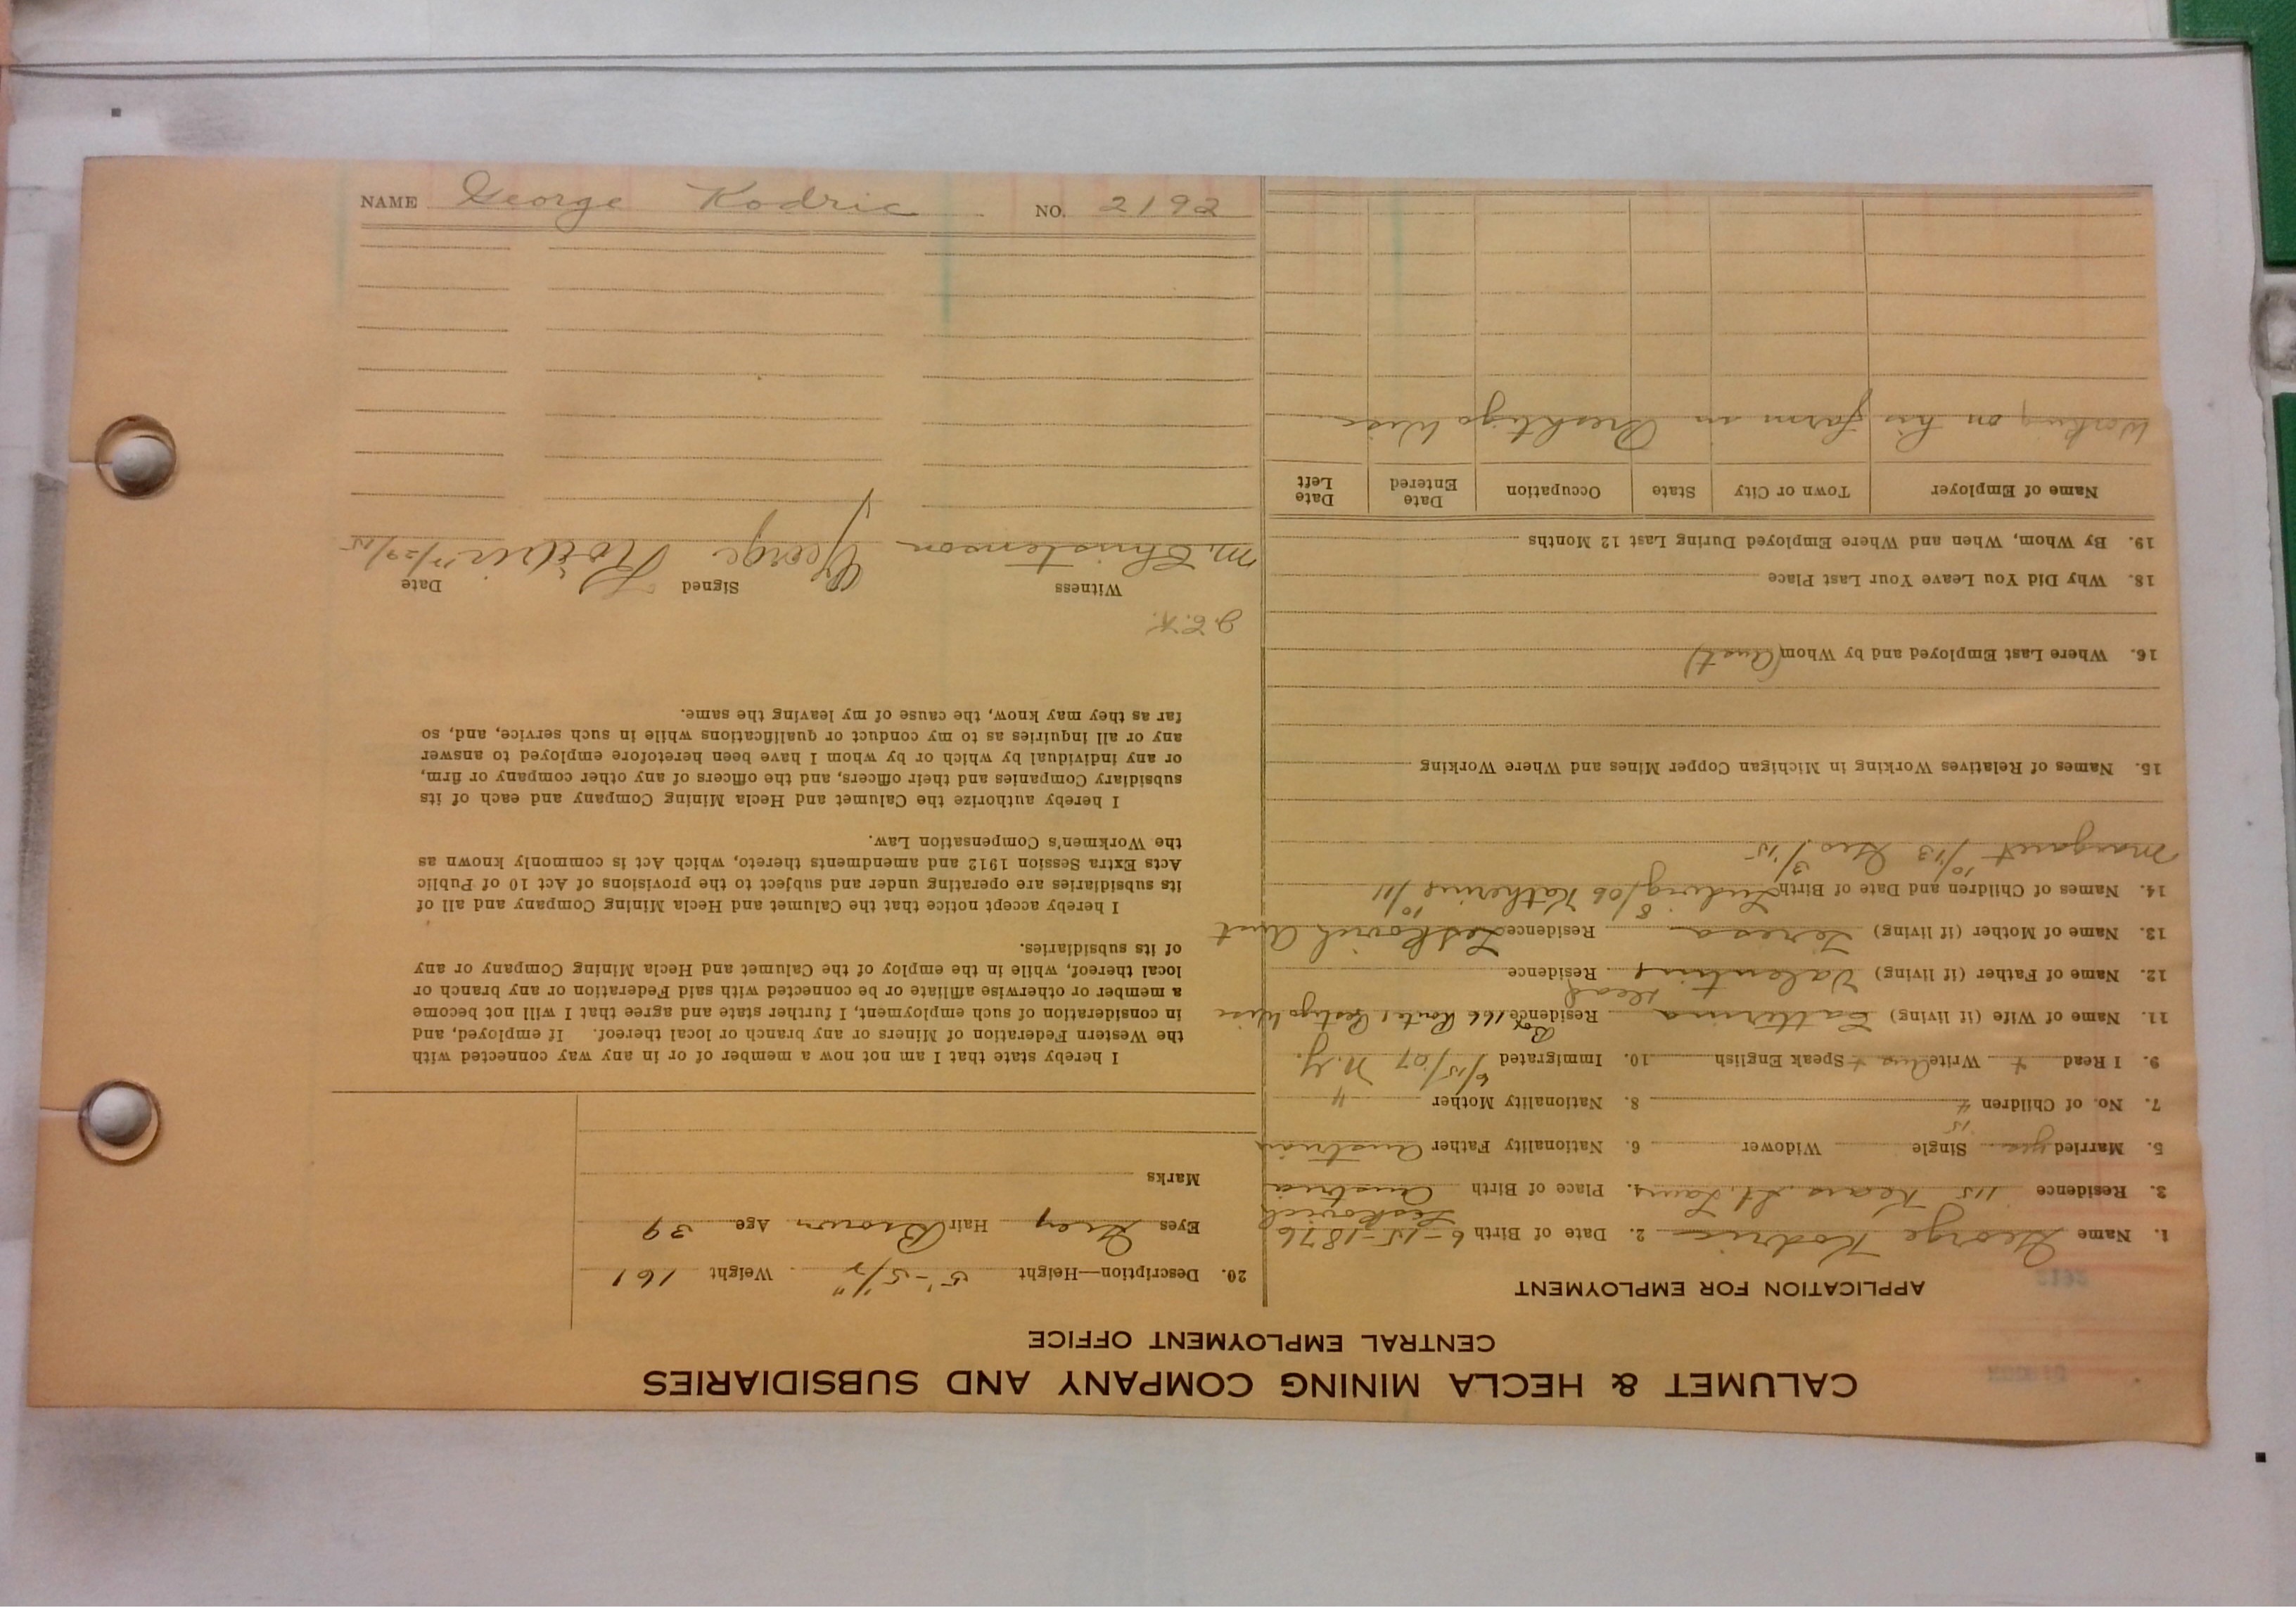 CALUMET & HECLA MINING COMPANY AND SUBSIDIARIES
CENTRAL EMPLOYMENT OFFICE
APPLICATION FOR EMPLOYMENT
1. Name George Kodric 2. Date of Birth 6-15-1876
Leskovich
3. Residence 115 Kears. St. Laur. 4. Place of Birth Austria
5. Married yes Single Widower 6. Nationality Father Austrian
15
7. No. of Children 4 8. Nationality Mother "
9. I Read + Write Aus + Speak English 10. Immigrated 6/15/07 N.Y.
11. Name of Wife (if living) Catterina Residence Box 166 Route 1 Pestigo Wisc
12. Name of Father (if living) Valentin dead Residence
13. Name of Mother (if living) Teresa Residence Leskovich Aust
14. Names of Children and Date of Birth Ludwig 8/06 Katherine 10/11
Margaret 10/13 Geo 3/15
15. Names of Relatives Working in Michigan Copper Mines and Where Working
16. Where Last Employed and by Whom (Aust)
18. Why Did You Leave Your Last Place
19. By Whom, When and Where Employed During Last 12 Months
Name of Employer Town or City State Occupation Date Entered Date Left
Working on his farm in Presktigo Wisc
20. Description—Height 5'-5 1/2" Weight 161
Eyes Grey Hair Brown Age 39
Marks
I hereby state that I am not now a member of or in any way connected with
the Western Federation of Miners or any branch or local thereof. If employed, and
in consideration of such employment, I further state and agree that I will not become
a member or otherwise affiliate or be connected with said Federation or any branch or
local thereof, while in the employ of the Calumet and Hecla Mining Company or any
of its subsidiaries.
I hereby accept notice that the Calumet and Hecla Mining Company and all of
its subsidiaries are operating under and subject to the provisions of Act 10 of Public
Acts Extra Session 1912 and amendments thereto, which Act is commonly known as
the Workmen's Compensation Law.
I hereby authorize the Calumet and Hecla Mining Company and each of its
subsidiary Companies and their officers, and the officers of any other company or firm,
or any individual by which or by whom I have been heretofore employed to answer
any or all inquiries as to my conduct or qualifications while in such service, and, so
far as they may know, the cause of my leaving the same.
J.E.K.
Witness Signed Date
M. Christenson George Kodric 7/29/15
NAME George Kodric NO. 2192